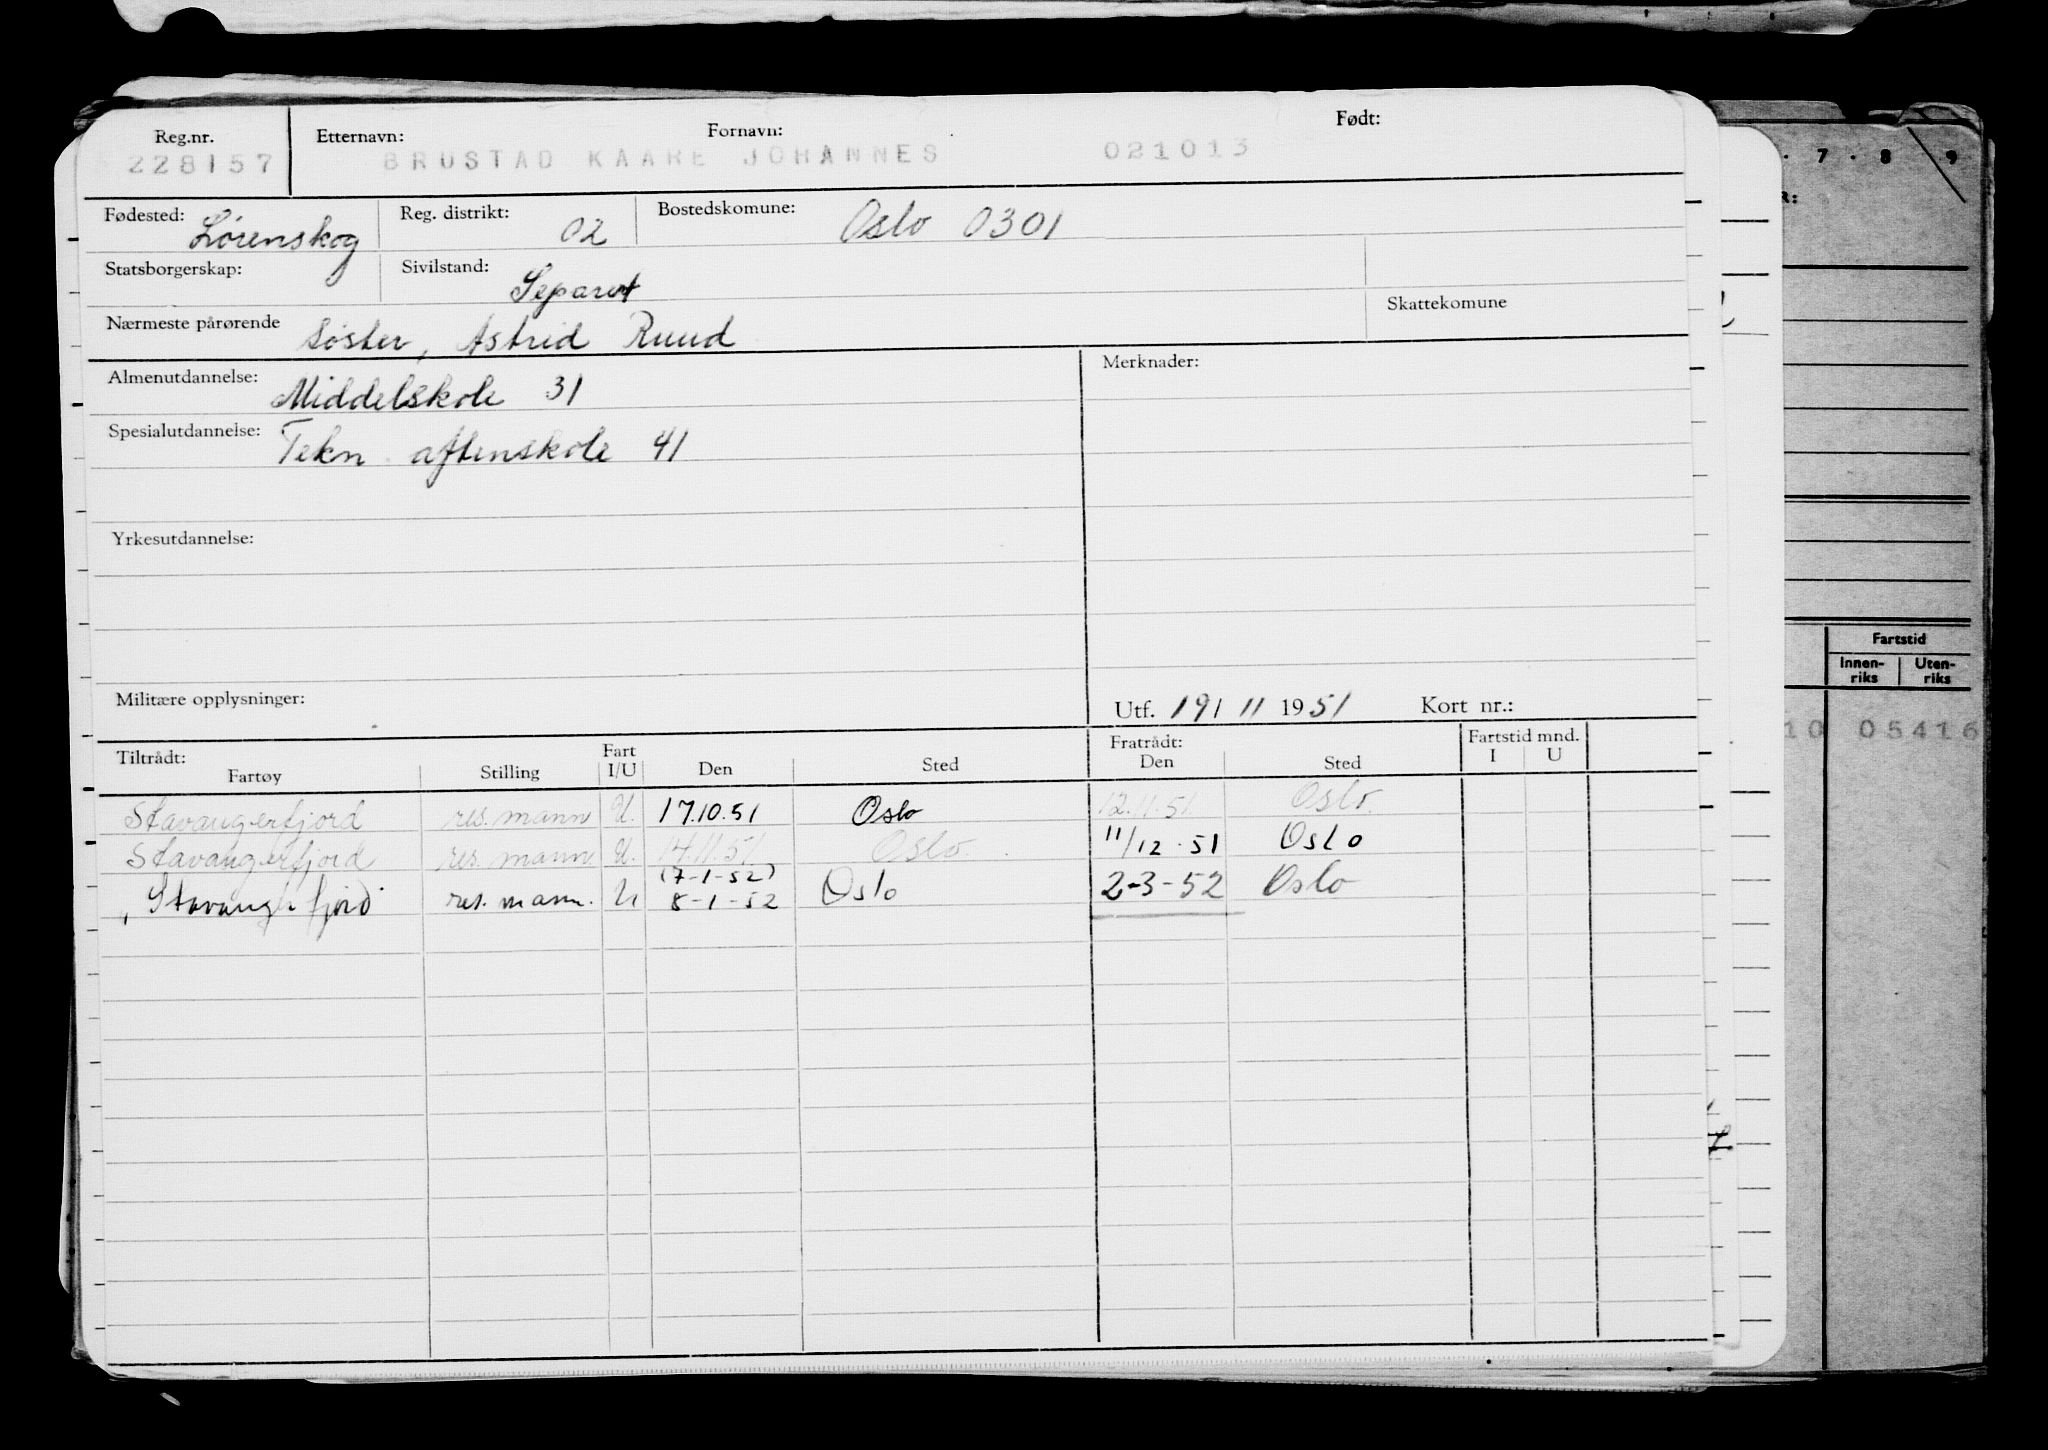 Reg.nr. Etternavn: Fornavn: Født:
228157 BRUSTAD KAARE JOHANNES 021013
Fødested: Lørenskog Reg. distrikt: 02 Bostedskomune: Oslo 0301
Statsborgerskap: Sivilstand: Separert
Skattekomune
Nærmeste pårørende søster, Astrid Ruud
Almenutdannelse: Middelskole 31 Merknader:
Spesialutdannelse: Tekn aftenskole 41
Yrkesutdannelse:
Militære opplysninger: Utf. 19/ 11 1951 Kort nr.:
Tiltrådt: Fart Fratrådt: Fartstid mnd.
Fartøy Stilling I/U Den Sted Den Sted I U
Stavangerfjord res. mann U. 17.10.51 Oslo 12.11.51 Oslo
Stavangerfjord res. mann U. 14.11.51 Oslo 11/12.51 Oslo
(7-1-52)
Stavangerfjord res. mann. U 8-1-52 Oslo 2-3-52 Oslo
. 7 . 8 9
R:
Fartstid
Innen-riks Uten-riks
10 05416